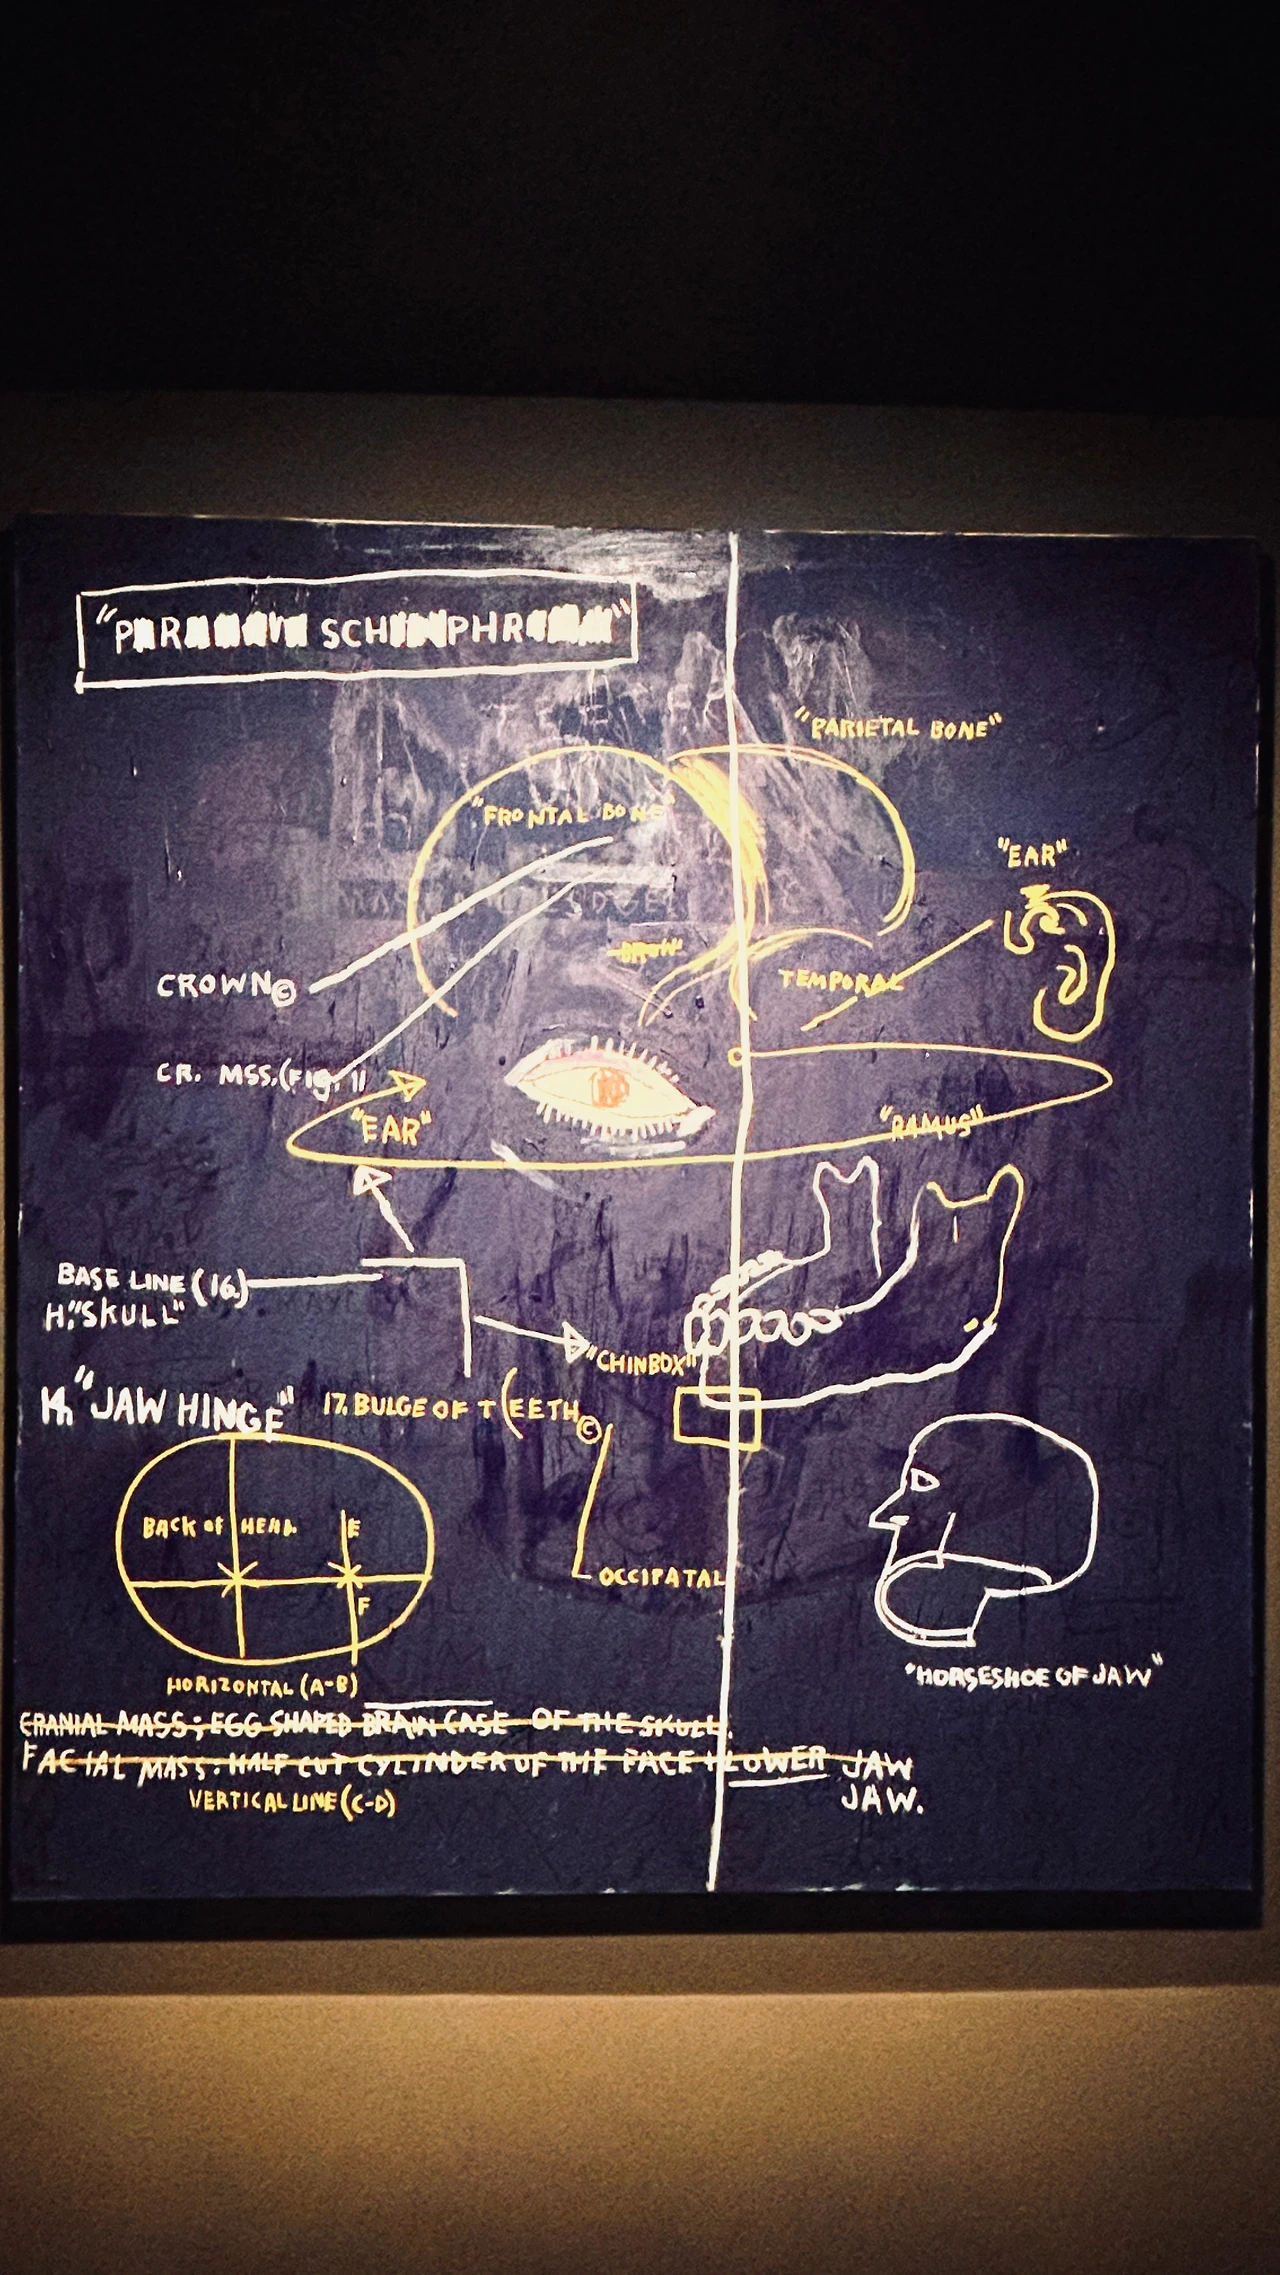 "PARANOIA SCHINPHRENIA"
"PARIETAL BONE"
"FRONTAL BONE"
"EAR"
BROW
CROWN©
TEMPORAL
CR. MSS. (FIG. 1)
"EAR"
"RAMUS"
BASE LINE (16.)
H. "SKULL"
"CHINBOX"
"JAW HINGE"
17. BULGE OF T(EETH©
BACK OF HEAD.
E
F
OCCIPATAL
HORIZONTAL (A-B)
"HORSESHOE OF JAW"
CRANIAL MASS; EGG SHAPED BRAIN CASE OF THE SKULL.
FACIAL MASS: HALF CUT CYLINDER OF THE FACE + LOWER JAW
JAW.
VERTICAL LINE (C-D)